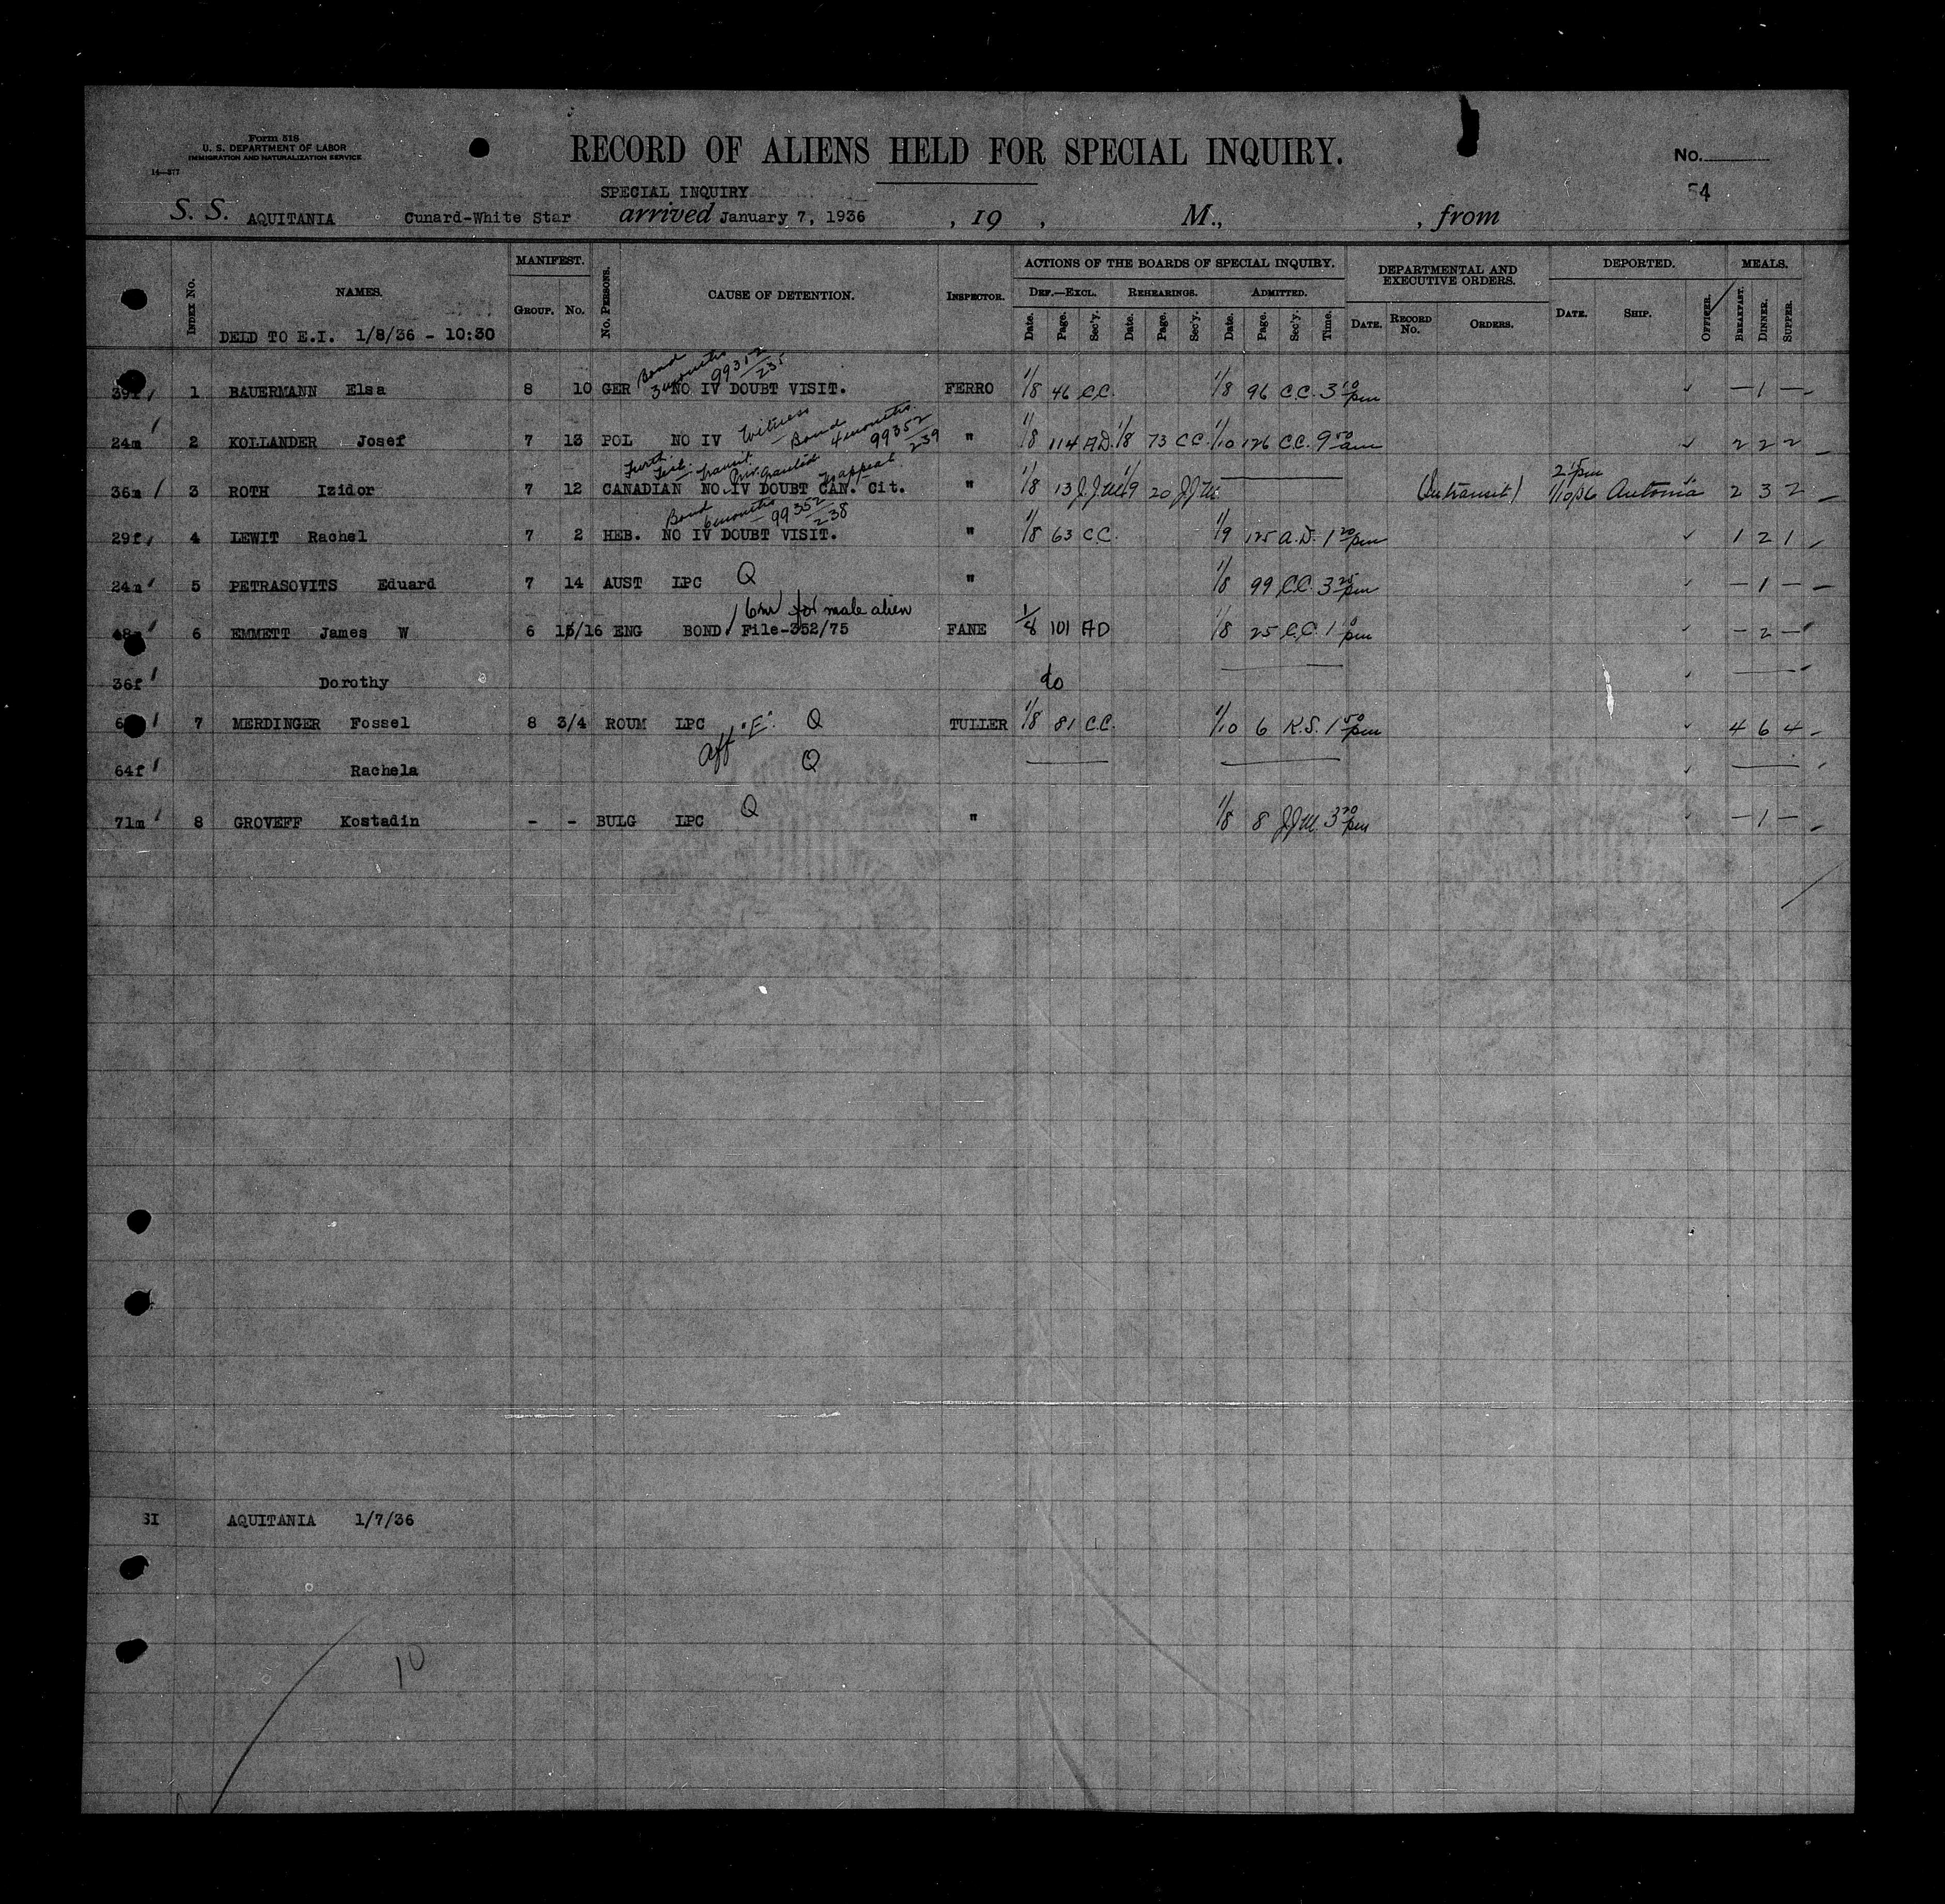 Form 518
U. S. DEPARTMENT OF LABOR
IMMIGRATION AND NATURALIZATION SERVICE
14—377
RECORD OF ALIENS HELD FOR SPECIAL INQUIRY.
No.
54
SPECIAL INQUIRY
S. S. AQUITANIA Cunard-White Star arrived January 7, 1936 , 19 , M., , from
INDEX No. NAMES. MANIFEST. GROUP. No. No. PERSONS. CAUSE OF DETENTION. INSPECTOR. ACTIONS OF THE BOARDS OF SPECIAL INQUIRY. DEPARTMENTAL AND EXECUTIVE ORDERS. DEPORTED. MEALS.
DEF.—EXCL. REHEARINGS. ADMITTED.
Date. Page. Sec'y. Date. Page. Sec'y. Date. Page. Sec'y. Time. DATE. RECORD No. ORDERS. DATE. SHIP. OFFICER. BREAKFAST. DINNER. SUPPER.
DELD TO E.I. 1/8/36 - 10:30
Bond 3 months 99352/235
39f 1 BAUERMANN Elsa 8 10 GER NO IV DOUBT VISIT. FERRO 1/8 46 C.C. 1/8 96 C.C. 3 10 pm — 1 —
Witness Bond 4 months 99352/239
24m 2 KOLLANDER Josef 7 13 POL NO IV " 1/8 114 A.D. 1/8 73 C.C. 1/10 126 C.C. 9 50 am 2 2 2
Transit Priv. granted No appeal
36m 3 ROTH Izidor 7 12 CANADIAN NO IV DOUBT CAN. Cit. " 1/8 13 J.J.M. 1/9 20 J.J.M. (In transit) 2 15 pm 1/10/36 Antonia 2 3 2
Bond 6 months 99352/238
29f 4 LEWIT Rachel 7 2 HEB. NO IV DOUBT VISIT. " 1/8 63 C.C. 1/9 125 A.D. 1 20 pm 1 2 1
24m 5 PETRASOVITS Eduard 7 14 AUST LPC Q " 1/8 99 C.C. 3 25 pm — 1 —
6m for male alien
48m 6 EMMETT James W 6 15/16 ENG BOND File-352/75 FANE 1/8 101 AD 1/8 25 C.C. 1 10 pm — 2 —
36f Dorothy do
7 MERDINGER Fossel 8 3/4 ROUM LPC "E" Q TULLER 1/8 81 C.C. 1/10 6 K.S. 1 50 pm 4 6 4
Aff
64f Rachela Q
71m 8 GROVEFF Kostadin - - BULG LPC Q " 1/8 8 J.J.M. 3 20 pm — 1 —
SI AQUITANIA 1/7/36
10